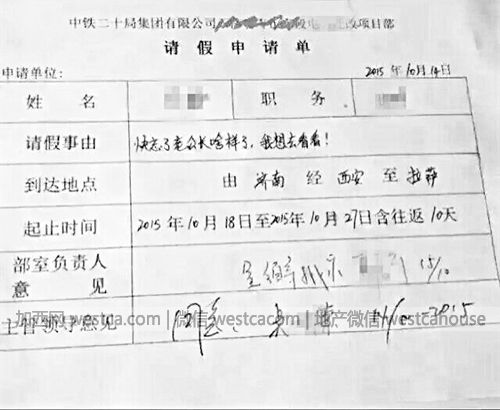 中铁二十局集团有限公司 改项目部
请假申请单
申请单位: 2015年10月14日
姓名 职务
请假事由 快忘了老公长啥样了,我想去看看!
到达地点 由济南经西安至拉萨
起止时间 2015年10月18日至2015年10月27日含往返10天
部室负责人
意见 15/10
主管领导意见 同意
加西网 westca.com | 微信 westcacom | 地产微信 westcahouse